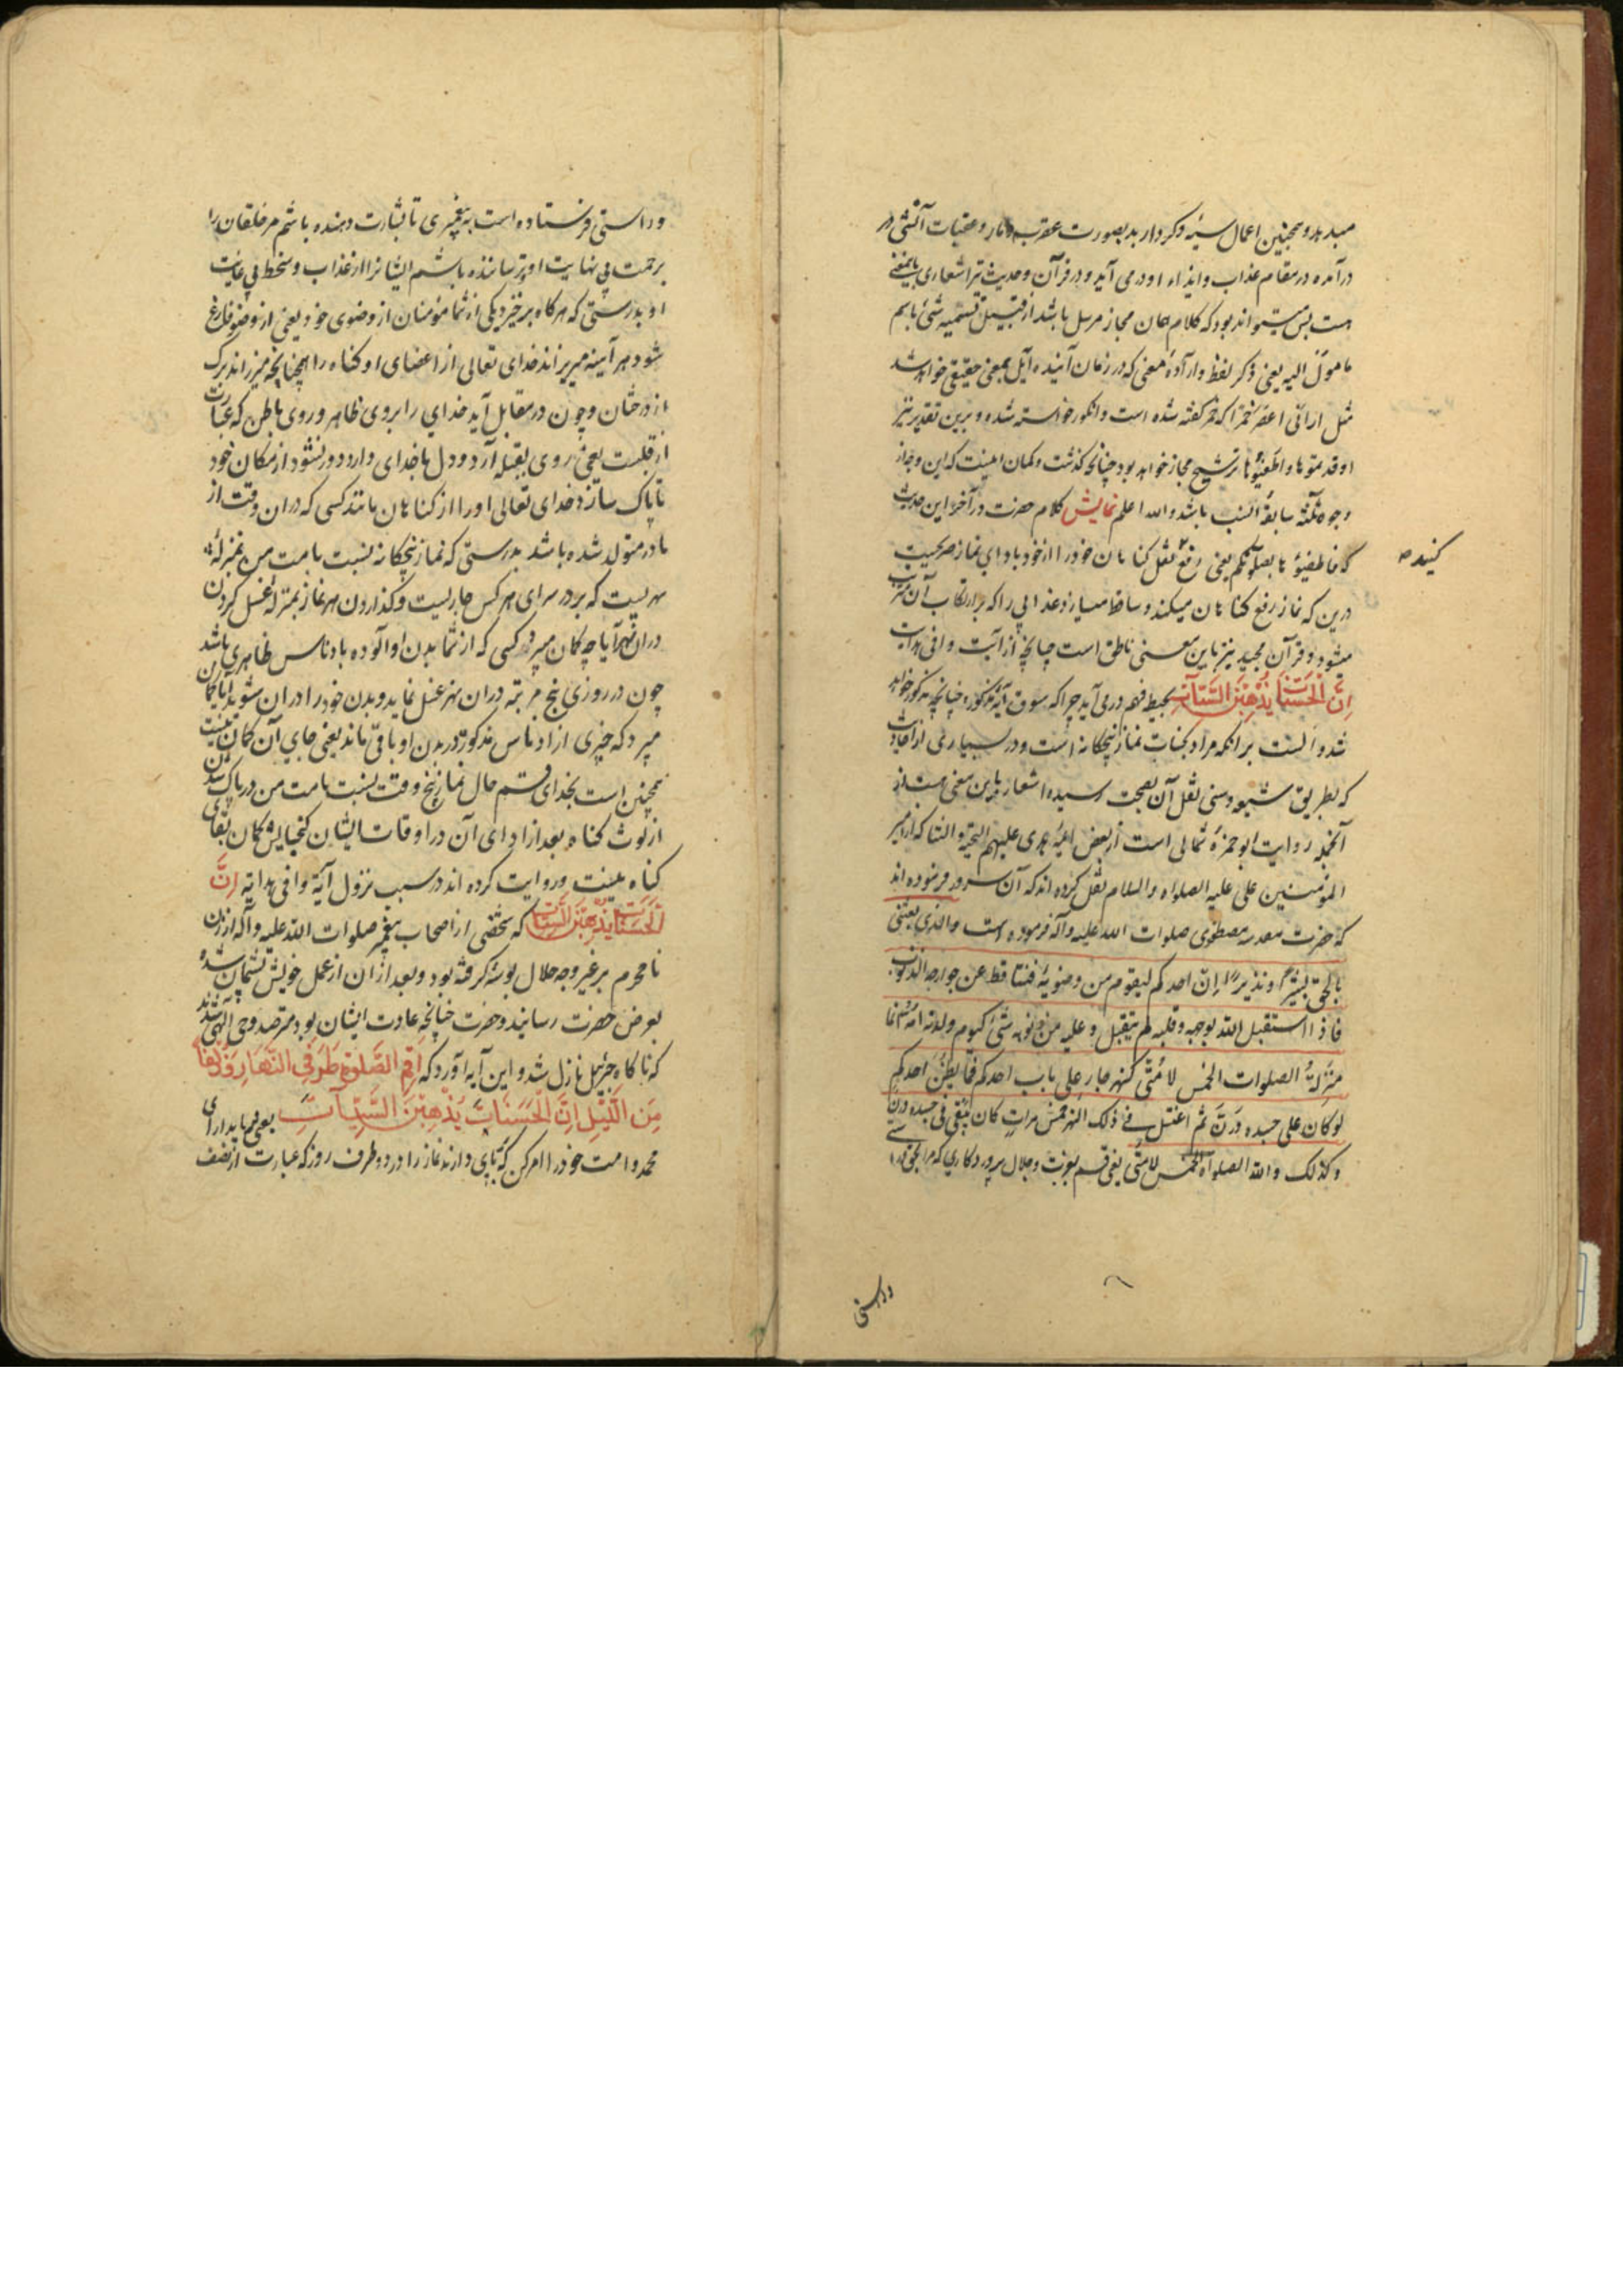 میدهد و همچنین اعمال سیئه و کردار بد بصورت عقرب و مار و عقبات آتشی در
درآمده در مقام عذاب و ایذاء او درمی آید و در قرآن و حدیث نیز اشعاری باینمعنی
هست پس میتواند بود که کلام همان مجاز مرسل باشد از قبیل تسمیه شئ باسم
مامول الیه یعنی ذکر لفظ و اراده معنی که در زمان آینده آیل بمعنی حقیقی خواهد شد
مثل ارانی اعصر خمرا که خمر گفته شده است و انگور خواسته شده و برین تقدیر نیز
اوقدتموها و اطفئوها ترشیح مجاز خواهد بود چنانچه گذشت و کمان اینست که این وجه از
وجوه ثلثه سابقه انسب باشد والله اعلم نمایش کلام حضرت در آخر این حدیث
که فاطفئوها بصلوتکم یعنی رفع ثقل کناهان خود را از خود باداى نماز صریحست
کنید
درین که نماز رفع کناهان میکند و ساقط میسازد عذابی را که بر ارتکاب آن مترتب
میشود و قرآن مجید نیز باین معنی ناطق است چنانچه از آیت وافی هدایت
اِنَّ الْحَسَنَاتِ یُذْهِبْنَ السَّیِّآتِ بحیطه فهم درمی آید چرا که سوق آیه مذکوره چنانچه مذکور خواهد
شد دالست بر آنکه مراد بحسنات نماز پنجکانه است و در بسیاری از احادیث
که بطریق شیعه و سنی نقل آن بصحت رسیده اشعار باین معنی هست از
آنجمله روایت ابوحمزه ثمالی است از بعض ائمه هدی علیهم التحیة والثنا که از امیر
المؤمنین علی علیه الصلواة والسلام نقل کرده اند که آن سرور فرموده اند
که حضرت مقدسه مصطفوی صلوات الله علیه وآله فرموده است والذی بعثنی
بالحق بشیرا ونذیرا ان احدکم لیقوم من وضوئه فتساقط عن جوارحه الذنوب
فاذا استقبل الله بوجهه وقلبه لم ینفتل وعلیه من ذنوبه شئ کیوم ولدته امه انما
منزلة الصلوات الخمس لامتی کنهر جار علی باب احدکم فما یظن احدکم
لو کان علی جسده درن ثم اغتسل فی ذلک النهر خمس مرات کان یبقی فی جسده درن
وکذلک والله الصلواة الخمس لامتی یعنی قسم بعزت و جلال پروردکاری که مرا بحق
وراستی
وراستی فرستاده است به پیغمبری تا بشارت دهنده باشم مر خلقان را
برحمت بی نهایت او و ترساننده باشم ایشانرا از عذاب و سخط بی غایت
او بدرستی که هرکاه برخیزد یکی از شما مؤمنان از وضوی خود یعنی از وضو فارغ
شود هر آینه میریزاند خدای تعالی از اعضای او کناه را همچنانچه میریزاند برک
از درختان و چون در مقابل آید خدای را بروی ظاهر و روی باطن که عبارت
از قلبست یعنی روی بقبله آرد و دل با خدای دارد دور نشود از مکان خود
تا پاک سازد خدای تعالی او را از کناهان مانند کسی که در ان وقت از
مادر متولد شده باشد بدرستی که نماز پنجکانه نسبت بامت من بمنزله
نهریست که بر در سرای هر کس جاریست و گذاردن هر نماز بمنزله غسل کردن
در ان نهر آیا چه کمان میبرد کسی که از شما بدن او آلوده بادناس ظاهری باشد
چون در روزی پنج مرتبه در ان نهر غسل نماید و بدن خود را در ان شوید آیا کمان
میبرد که چیزی از ادناس مذکور در بدن او باقی ماند یعنی جای آن کمان نیست
همچنین است بخدای قسم حال نماز پنج وقت نسبت بامت من در پاک شدن
از لوث کناه بعد از ادای آن در اوقات ایشان کنجایش کمان بقای
کناه نیست و روایت کرده اند در سبب نزول آیة وافی هدایة اِنَّ
الْحَسَنَاتِ یُذْهِبْنَ السَّیِّآتِ که شخصی از اصحاب پیغمبر صلوات الله علیه وآله از زن
نامحرم بر غیر وجه حلال بوسه کرفته بود و بعد از ان از عمل خویش پشیمان شده
بعرض حضرت رسانید و حضرت چنانچه عادت ایشان بود مترصد وحی الهی شدند
که ناکاه جبرئیل نازل شد و این آیه آورد که اَقِمِ الصَّلٰوةَ طَرَفَیِ النَّهَارِ وَ زُلَفًا
مِنَ اللَّیْلِ اِنَّ الْحَسَنَاتِ یُذْهِبْنَ السَّیِّآتِ یعنی برپا بدار ای
محمد و امت خود را امر کن که برپای دارند نماز را در دو طرف روز که عبارت از نصف